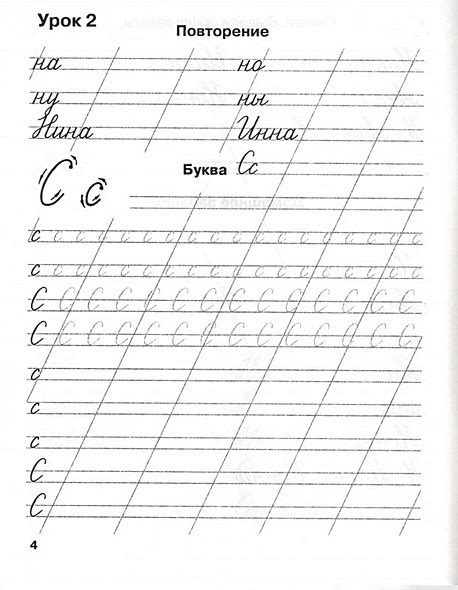 Урок 2
Повторение
на но
ну ны
Нина Инна
Буква Сс
С с
с с с с с с с с с с с с с с с с с с с
с с с с с с с с с с с с с с с с с с с
С С С С С С С С С С С С С С
С С С С С С С С С С С С С С
с
с
с
С
С
4